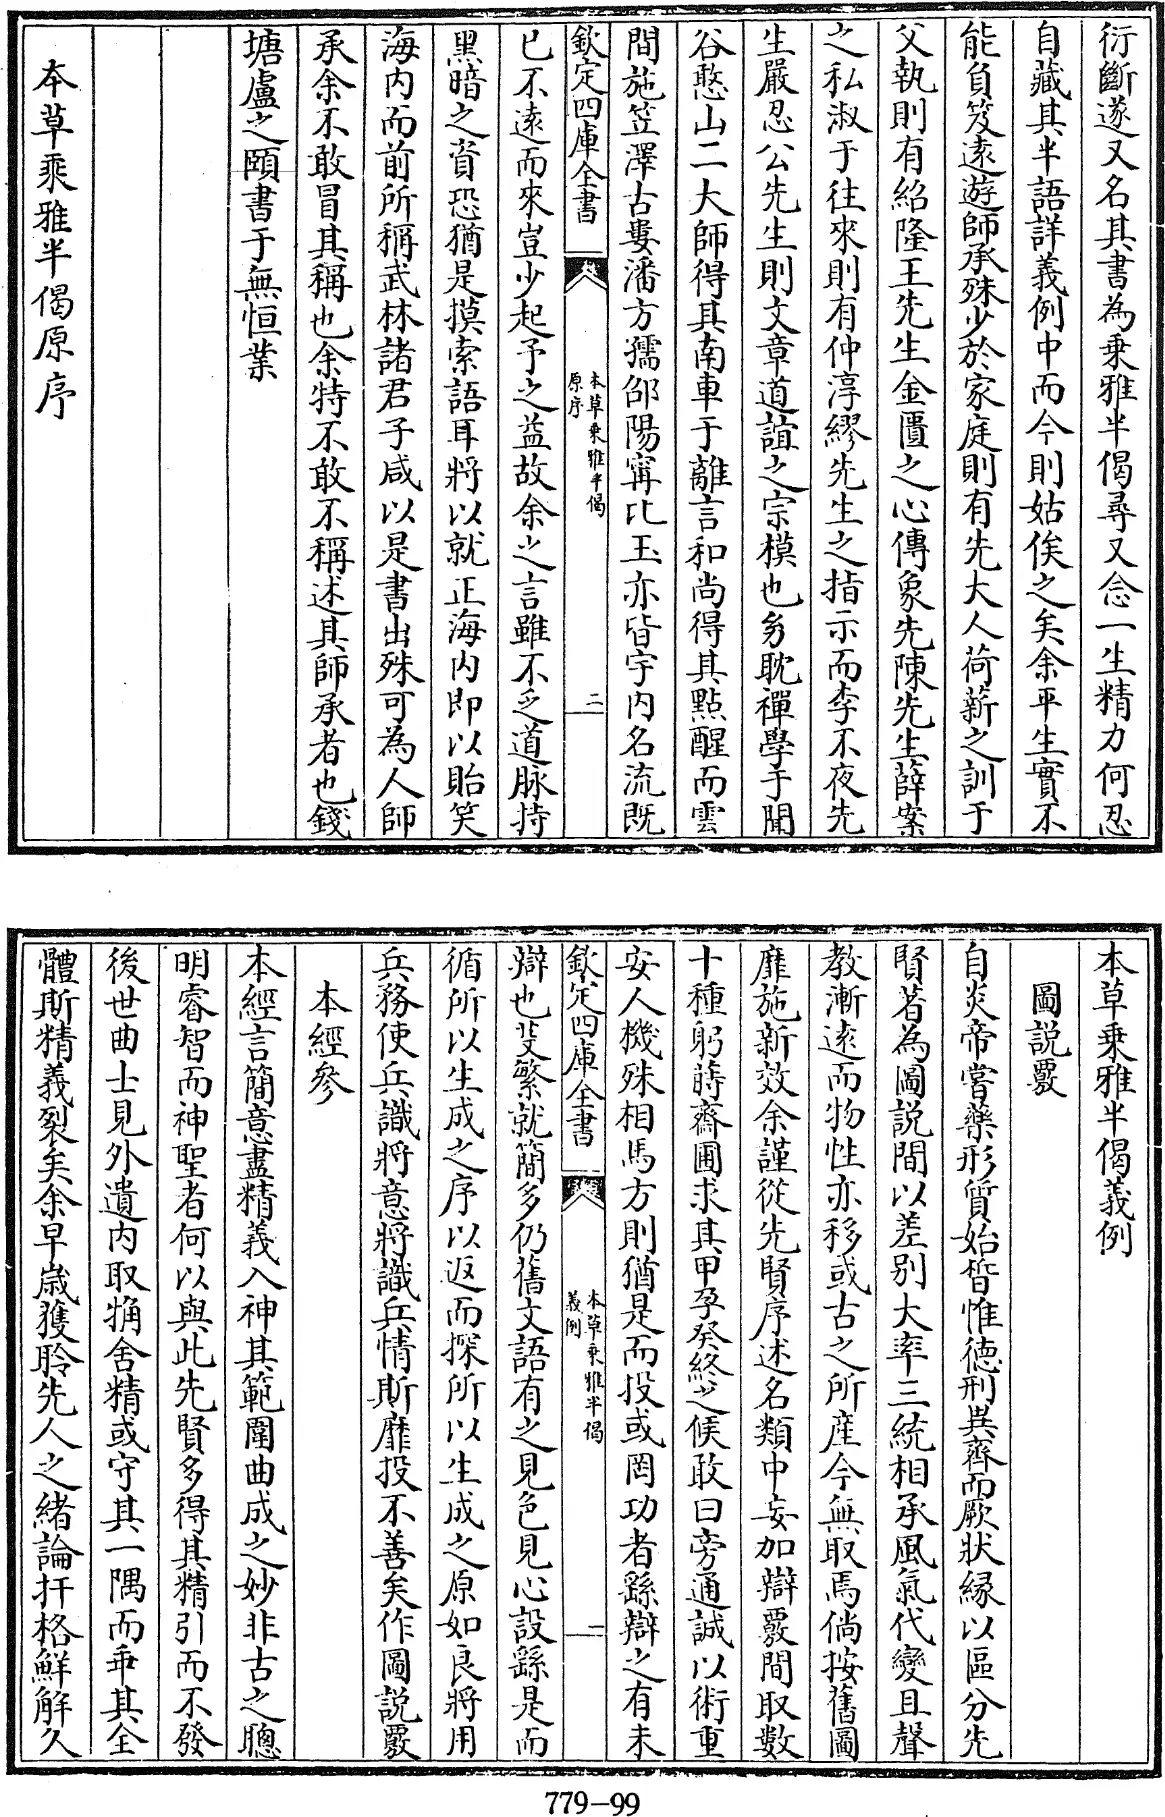 衍斷遂又名其書為乗雅半偈尋又念一生精力何忍
自藏其半語詳義例中而今則姑俟之矣余平生實不
能負笈逺遊師承殊少於家庭則有先大人荷薪之訓于
父執則有紹隆王先生金匱之心傳象先陳先生薛案
之私淑于往來則有仲淳繆先生之指示而李不夜先
生嚴忍公先生則文章道誼之宗模也㓜耽禪學于聞
谷憨山二大師得其南車于離言和尚得其點醒而雲
間施笠澤古婁潘方孺邵陽甯比玉亦皆宇内名流既
欽定四庫全書
本草乗雅半偈
原序
二
已不逺而來豈少起予之益故余之言雖不乏道脉持
黑暗之資恐猶是摸索語耳將以就正海内即以貽笑
海内而前所稱武林諸君子咸以是書出殊可為人師
承余不敢冒其稱也余特不敢不稱述其師承者也錢
塘盧之頤書于無恒業
本草乘雅半偈原序
本草乗雅半偈義例
圖說覈
自炎帝嘗藥形質始晳惟徳刑異齊而厥狀縁以區分先
賢著為圖說間以差别大率三統相承風氣代變且聲
教漸逺而物性亦移或古之所産今無取焉倘按舊圖
靡施新效余謹從先賢序述名類中妄加辯覈間取數
十種躬蒔齋圃求其甲孕癸終之候敢曰旁通誠以術重
安人機殊相馬方則猶是而投或罔功者繇辯之有未
欽定四庫全書
本草乗雅半偈
義例
二
辯也芟繁就簡多仍舊文語有之見色見心設繇是而
循所以生成之序以返而探所以生成之原如良將用
兵務使兵識將意將識兵情斯靡投不善矣作圖說覈
本經參
本經言簡意盡精義入神其範圍曲成之妙非古之聰
明睿智而神聖者何以與此先賢多得其精引而不發
後世曲士見外遺内取觕舍精或守其一隅而乖其全
體斯精義裂矣余早嵗獲聆先人之緒論扞格鮮解久
779-99